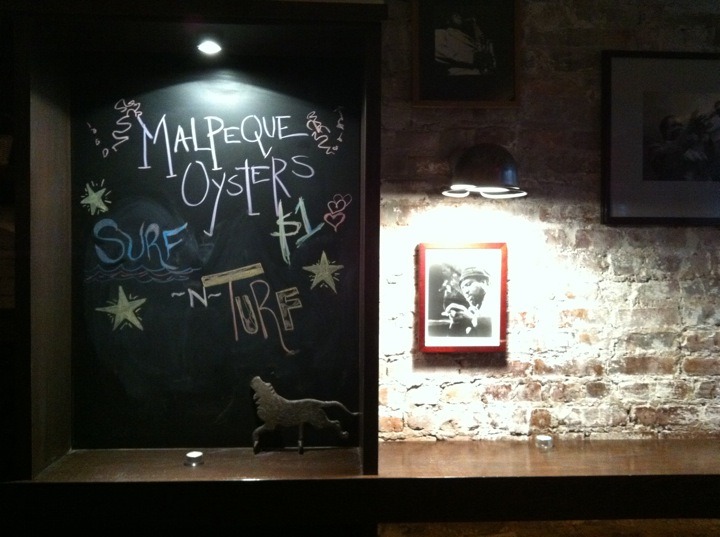 MALPEQUE
OYSTERS
$1
SURF
~N~
TURF